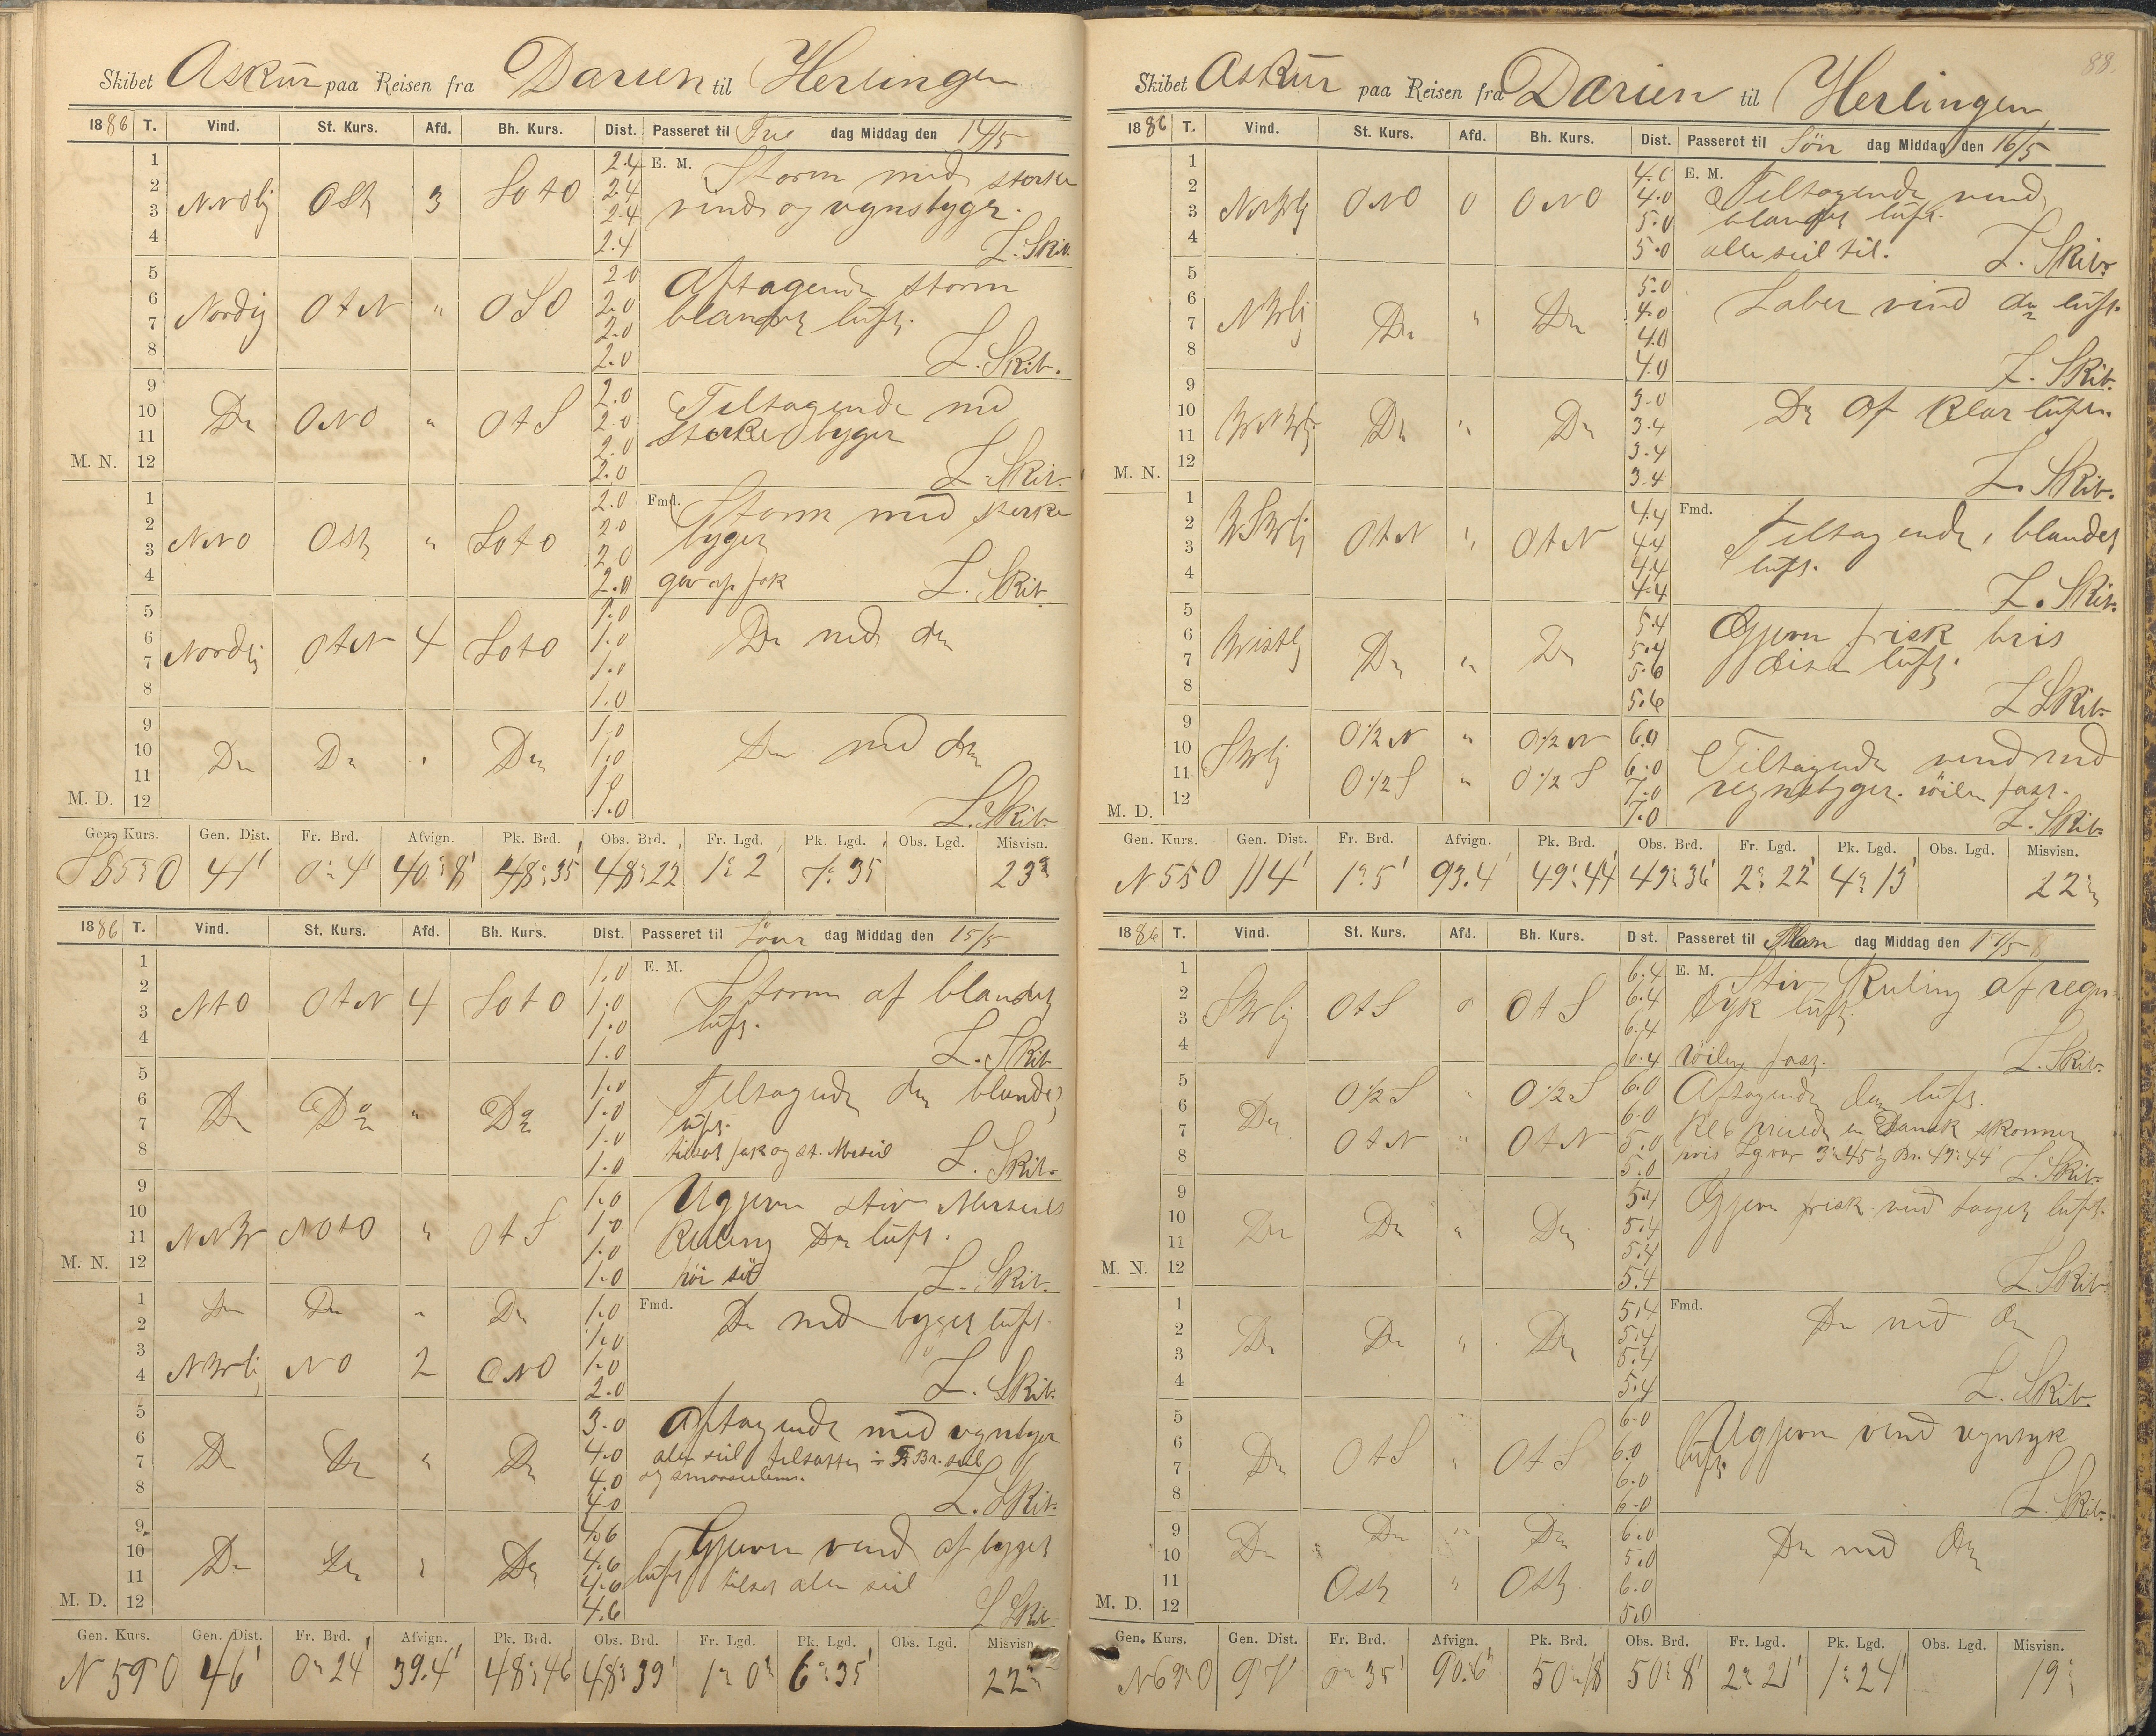 88
Skibet Askur paa Reisen fra Darien til Herlingen
1886 T. Vind. St. Kurs. Afd. Bh. Kurs. Dist. Passeret til Fre dag Middag den 14/5
E. M.
1 2 3 4 Nordlig Ost 3 SOtO 2.4 2.4 2.4 2.4 Storm med sterke
vind og regnsbyger.
L. Skib.
5 6 7 8 Nordlig OtN " OSO 2.0 2.0 2.0 2.0 Aftagende storm
blandet luft.
L. Skib.
9 10 11 12 Do ONO " OtS 2.0 2.0 2.0 2.0 Tiltagende med
sterke byger
L. Skib.
M. N.
Fmd.
1 2 3 4 NNO Ost " SOtO 2.0 2.0 2.0 2.0 Storm med sterke
byger
L. Skib.
5 6 7 8 Nordlig OtN 4 SOtO 1.0 1.0 1.0 1.0 Do med do
9 10 11 12 Do Do " Do 1.0 1.0 1.0 1.0 Do med do
L. Skib.
M. D.
Gen. Kurs. Gen. Dist. Fr. Brd. Afvign. Pk. Brd. Obs. Brd. Fr. Lgd. Pk. Lgd. Obs. Lgd. Misvisn.
S85°O 41' 0°4' 40°8' 48°35' 48°22' 1°2 7°35' 23°
1886 T. Vind. St. Kurs. Afd. Bh. Kurs. Dist. Passeret til Löver dag Middag den 15/5
E. M.
1 2 3 4 NtO OtN 4 SOtO 1.0 1.0 1.0 1.0 Storm af blandet
luft.
L. Skib.
5 6 7 8 Do Do " Do 1.0 1.0 1.0 1.0 Tiltagende do blandet
luft.
L. Skib.
9 10 11 12 NNW NOtO " OtS 1.0 1.0 1.0 1.0 Ugjevn stiv Merseils
Kuling Do luft.
höi sö
L. Skib.
M. N.
Fmd.
1 2 Do Do " Do 1.0 1.0 Do med byget luft
3 4 NWlig NO 2 ONO 1.0 2.0
L. Skib.
5 6 7 8 Do Do " Do 3.0 4.0 4.0 4.0 Aftagende med regnbyger
L. Skib.
9 10 11 12 Do Do " Do 4.6 4.6 4.6 4.6 Gjevn vend af byget
luft tilsat alle seil
L Skib
M. D.
Gen. Kurs. Gen. Dist. Fr. Brd. Afvign. Pk. Brd. Obs. Brd. Fr. Lgd. Pk. Lgd. Obs. Lgd. Misvisn.
N59O 46' 0°24' 39.4' 48°46 48°39' 1°0' 6°35' 22°
Skibet Askur paa Reisen fra Darien til Herlingen
1886 T. Vind. St. Kurs. Afd. Bh. Kurs. Dist. Passeret til Sön dag Middag den 16/5
E. M.
1 2 3 4 NNWlig ONO 0 ONO 4.0 4.0 5.0 5.0 Tiltagende vend
blandet luft.
alle seil til.
L. Skib.
5 6 7 8 NWlig Do " Do 5.0 4.0 4.0 4.0 Laber vind do luft.
L. Skib.
9 10 11 12 WNWlig Do " Do 3.0 3.4 3.4 3.4 Do af klar luft.
L. Skib.
M. N.
Fmd.
1 2 3 4 WSWlig OtN " OtN 4.4 4.4 4.4 4.4 Tiltagende, blandet
luft.
L. Skib.
5 6 7 8 Westlig Do " Do 5.4 5.4 5.6 5.6 Gjevn frisk bris
diset luft.
L Skib.
9 10 SWlig O½N " O½N 6.0 6.0 Tiltagende vend med
11 12 O½S " O½S 7.0 7.0 regnsbyger. röilen fast.
L. Skib.
M. D.
Gen. Kurs. Gen. Dist. Fr. Brd. Afvign. Pk. Brd. Obs. Brd. Fr. Lgd. Pk. Lgd. Obs. Lgd. Misvisn.
N55O 114' 1°5' 93.4' 49°44' 49°36' 2°22' 4°13' 22°
1886 T. Vind. St. Kurs. Afd. Bh. Kurs. Dist. Passeret til Man dag Middag den 17/5
E. M.
1 2 3 4 SWlig OtS 0 OtS 6.4 6.4 6.4 6.4 Stiv Kuling af regn
tyk luft.
röilen fast.
L. Skib.
5 6 Do O½S " O½S 6.0 6.0 Aftagende do luft.
7 8 OtN " OtN 5.0 5.0 Kl 6 preiede en Dansk skonner
L. Skib.
9 10 11 12 Do Do " Do 5.4 5.4 5.4 5.4 Gjevn frisk vind taaget luft.
L. Skib.
M. N.
Fmd.
1 2 3 4 Do Do " Do 5.4 5.4 5.4 5.4 Do med do
L. Skib.
5 6 7 8 Do OtS " OtS 6.0 6.0 6.0 6.0 Ugjevn vend regntyk
luft.
L. Skib.
9 10 Do Do " Do 6.0 5.0 Do med Do
11 12 Ost " Ost 6.0 5.0
M. D.
Gen. Kurs. Gen. Dist. Fr. Brd. Afvign. Pk. Brd. Obs. Brd. Fr. Lgd. Pk. Lgd. Obs. Lgd. Misvisn.
N69°O 97' 0°35' 90.6' 50°18' 50°8' 2°21' 1°24' 19°